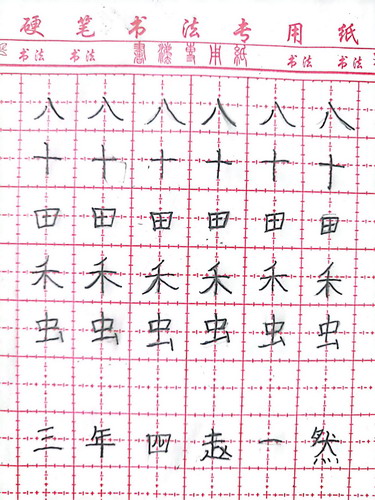 硬笔书法专用纸
书法 书法 書法専用紙 书法 书法
八八八八八八
十十十十十十
田田田田田田
禾禾禾禾禾禾
虫虫虫虫虫虫
三年四赵一然